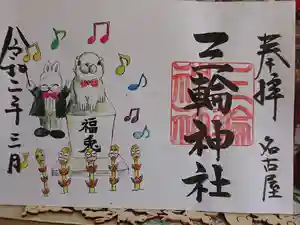 奉拝
名古屋
三輪神社
福兎
令和二年三月